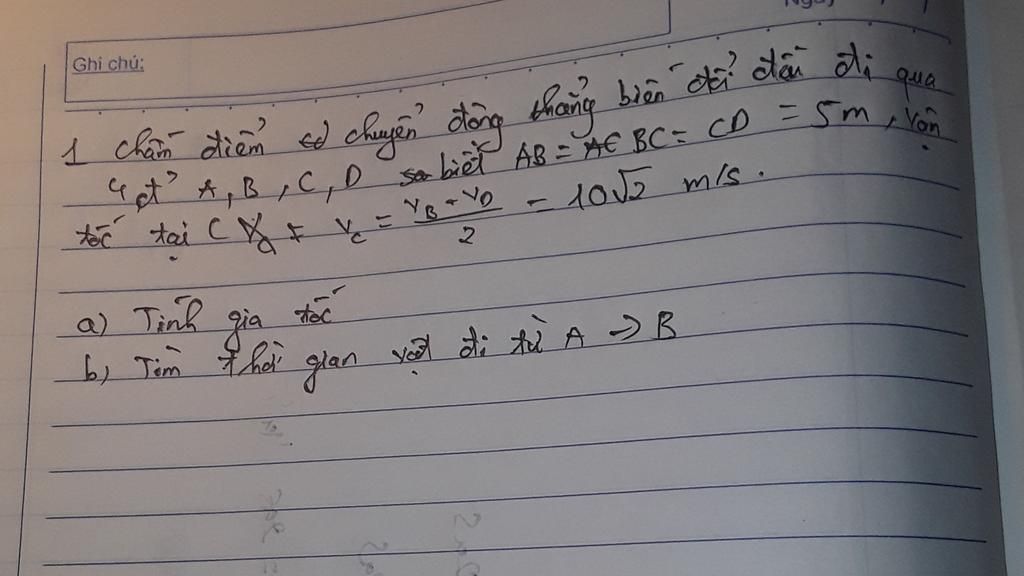 Ngày
Ghi chú:
1 chấm điểm cđ chuyển động thẳng biến đổi đều đi qua
4 đ' A, B, C, D biết AB = BC = CD = 5m, vận
tốc tại C v_c = \frac{v_B - v_D}{2} = 10√2 m/s.
a) Tính gia tốc
b, Tìm thời gian vật đi từ A => B